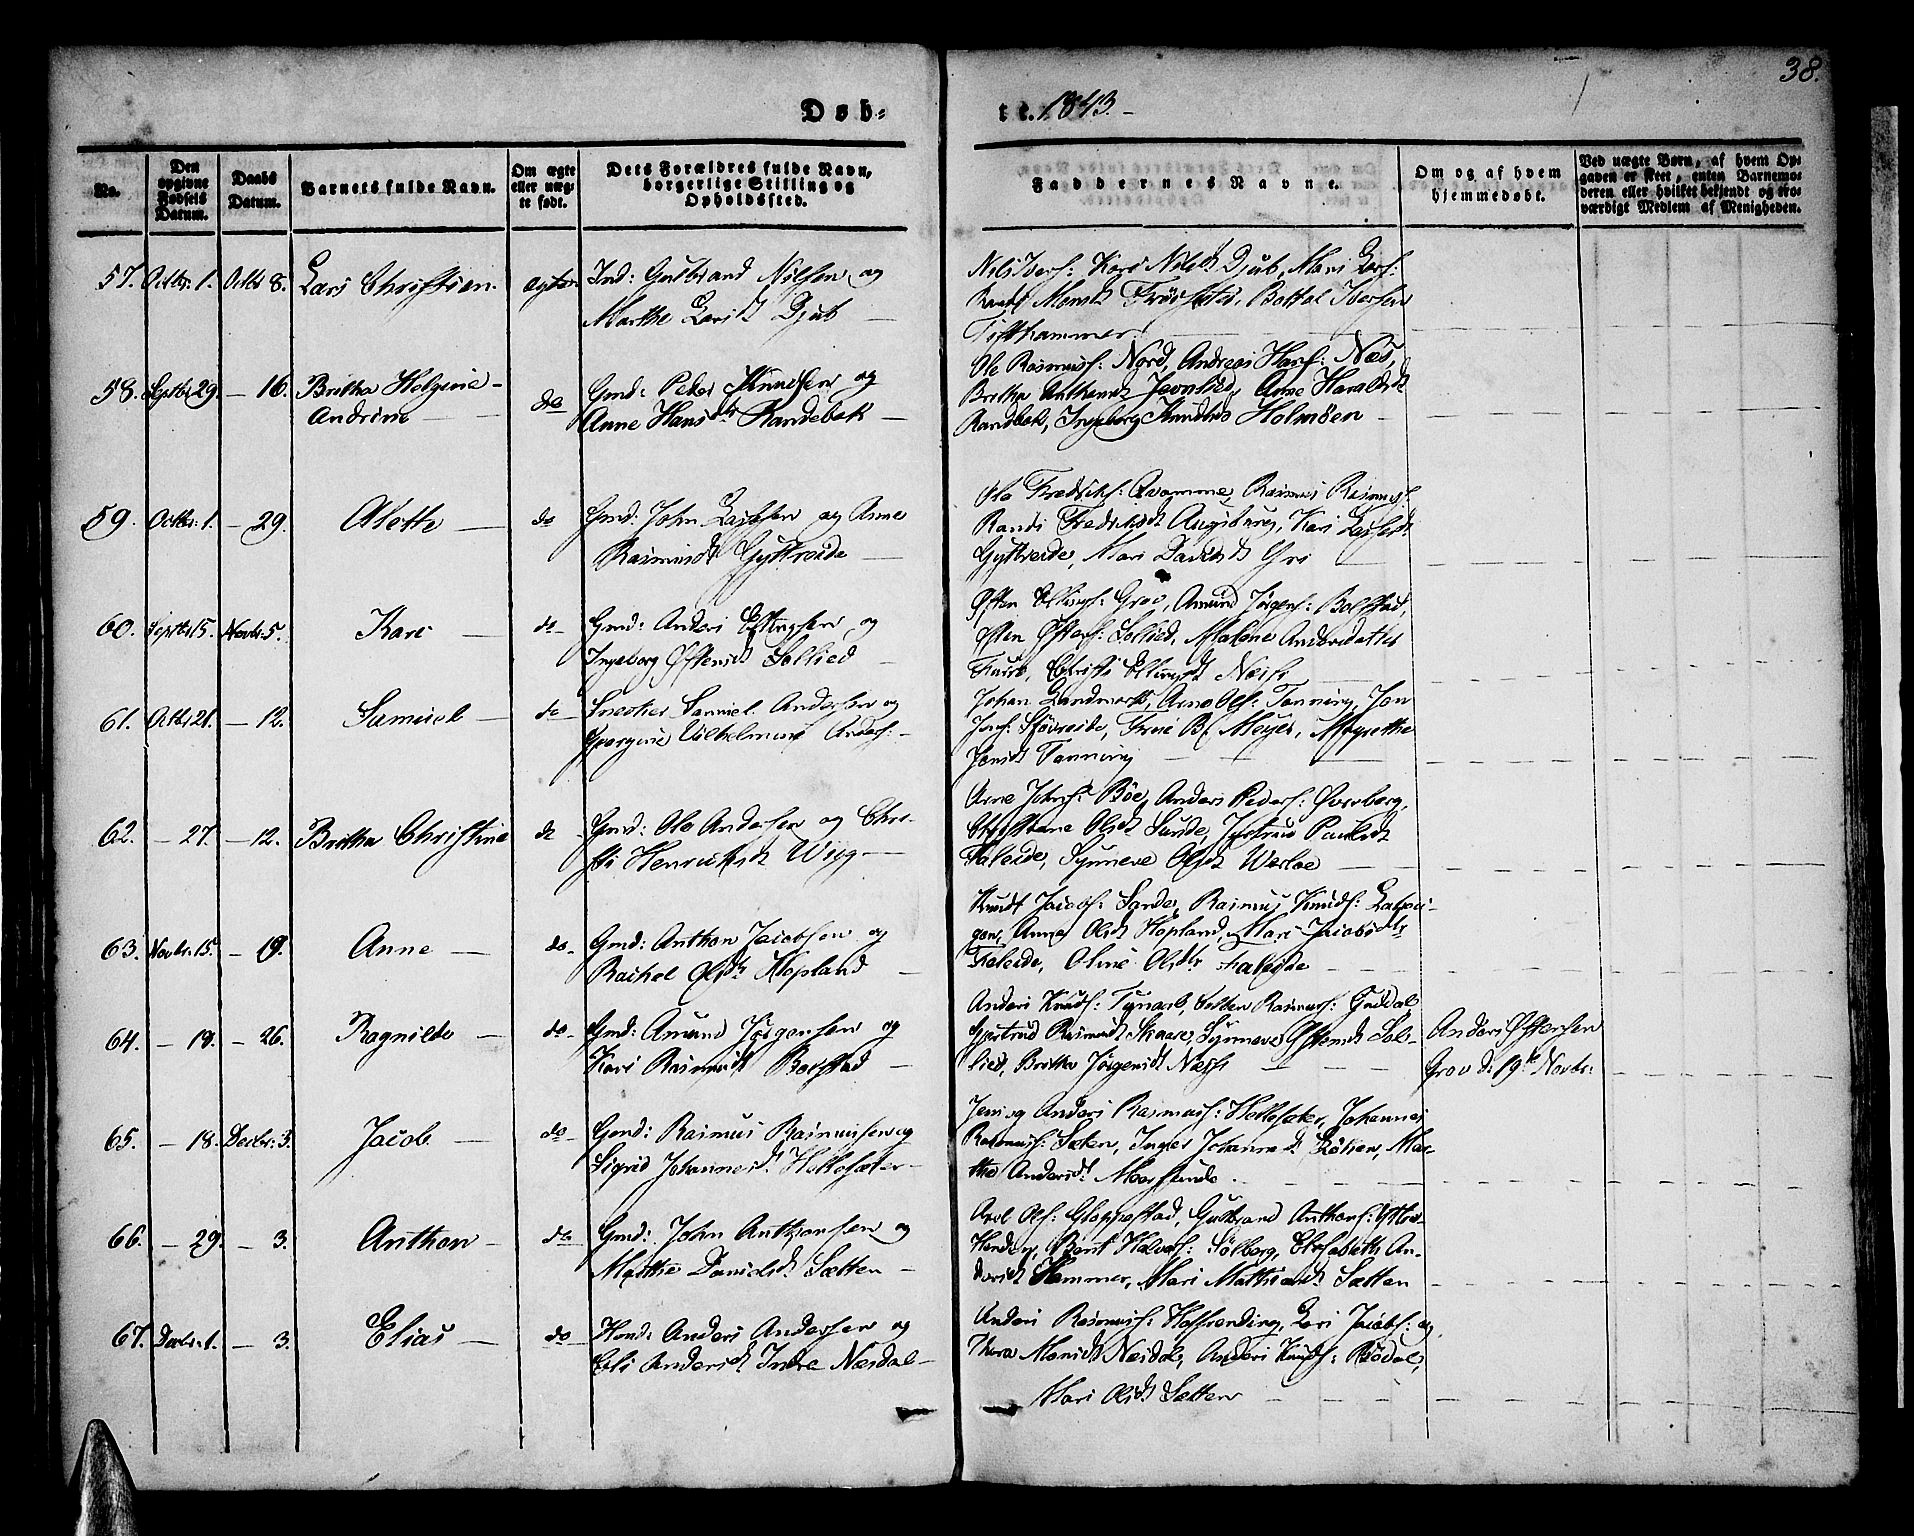 38.
Døb-
te. 1843.
No.
Den opgivne Fødsels Datum.
Daabs Datum.
Barnets fulde Navn.
Om ægte eller uæg- te født.
Dets Forældres fulde Navn, borgerlige Stilling og Opholdssted.
Faddernes Navne.
Om og af hvem hjemmedøbt.
Ved uægte Børn, af hvem Op- gaven er skeet, enten Barnemo- deren eller hvilket bekjendt og tro- værdigt Medlem af Menigheden.
57. Octbr: 1. Octbr 8. Lars Christian. Ind: Gulbrand Nilsen og
Marthe Larsdt Djub
Nils Ivers: Kari Nilsdt Djub, Mari Lars:
Monsdt Frøisted, Bottol Iversen
58. Septbr 29. — 16. Brithe Andrine do Gmd: Peder Knudsen og
Anne Hansdtr Randebek
Ole Rasmus: Nord, Andreas Hans: Næs,
Brithe Anthonsdt Anne Haraldsdt
Randbek, Ingeborg Knudsdt Holmøen
59. Octbr: 1. — 29. Alette do Gmd: John og Anne
Rasmusdt Gyttreide
Ole Fredriks: Qvamme, Rasmus Rasmus:
Randi Fredriksdt Augsburg, Kari
Gyttreide, Mari Davidsdt Gri
60. Septbr 15. Novbr: 5. Kari do Gmd: Anders Ellingsen og
Ingeborg Østensdt Sollied
Østen Ellings: Grov, Amund Jørgens: Bolstad,
Østen Østens: Sollied, Malene Andersdatter
Ellingsdt
61. Octbr 21. — 12. Samuel do Snedker Samuel Andersen og
Vilhelmine Anders:
Johan Landmark, Arne Ols: Tonning, Jon
Meyer, Magrethe
Jonsdt Tonning
62. — 27. — 12. Brithe Christine do Gmd: Ole Andersen og Chri-
sti Henriksdt Wiig
Arne Johns: Bøe, Anders Peders: Øvreberg,
Olsdt Sunde, Paulsdt
Faleide, Synneve Olsdt
63. Novbr: 15. — 19. Anne do. Gmd: Anthon Jacobsen og
Rachel Olsdtr Hopland
Knudt Jacobs: Sande, Rasmus Knuds:
Anne Olsdt Hopland, Mari Jacobsdtr
Faleide, Oline Olsdtr Faleide
64. — 19. — 26. Ragnilde do Gmd: Amund Jørgensen og
Kari Rasmusdt Bolstad
Anders Knuds: Rasmus:
Gjertrud Rasmusdt Skaare, Synneve Østensdt Sol-
lied, Brithe Jørgensdt
Anders Østensen
Grov d: 19de Novbr:
65. — 18. Decbr: 3. Jacob do Gmd: Rasmus Rasmussen og
Sigrid Johannesdt. Hellesæter
Jens og Anders Rasmus: Hellesæter, Johannes
Rasmus: Sæten, Inger Johannesdt Mar-
the Andersdt
66. — 29. — 3. Anthon do Gmd: John Anthonsen og
Marthe Danielsdt Sætten
Ols: Gloppestad, Gulbrand Anthons:
Bent Halvors: Sølberg, Elisabeth An-
dersdt Hammer, Mari Mathiasdt Sætten
67. Decbr: 1. — 3. Elias do Anders Andersen og
Andersdt Indre Nærdal
Anders Rasmus: Lars Jacobs: og
Thora Monsdt Anders Knuds: Rødal,
Mari Olsdt Sætten